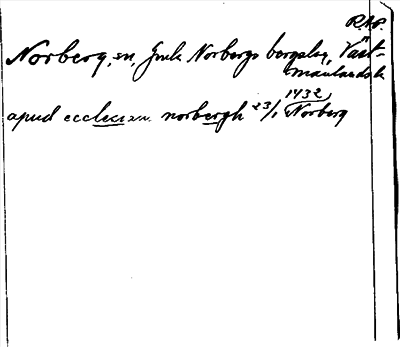 R.A.P.
Norberg, sn, Gamla Norbergs bergslag, Väst-
manlands l.
apud ecclesiam norbergh 23/1 1432 Norberg